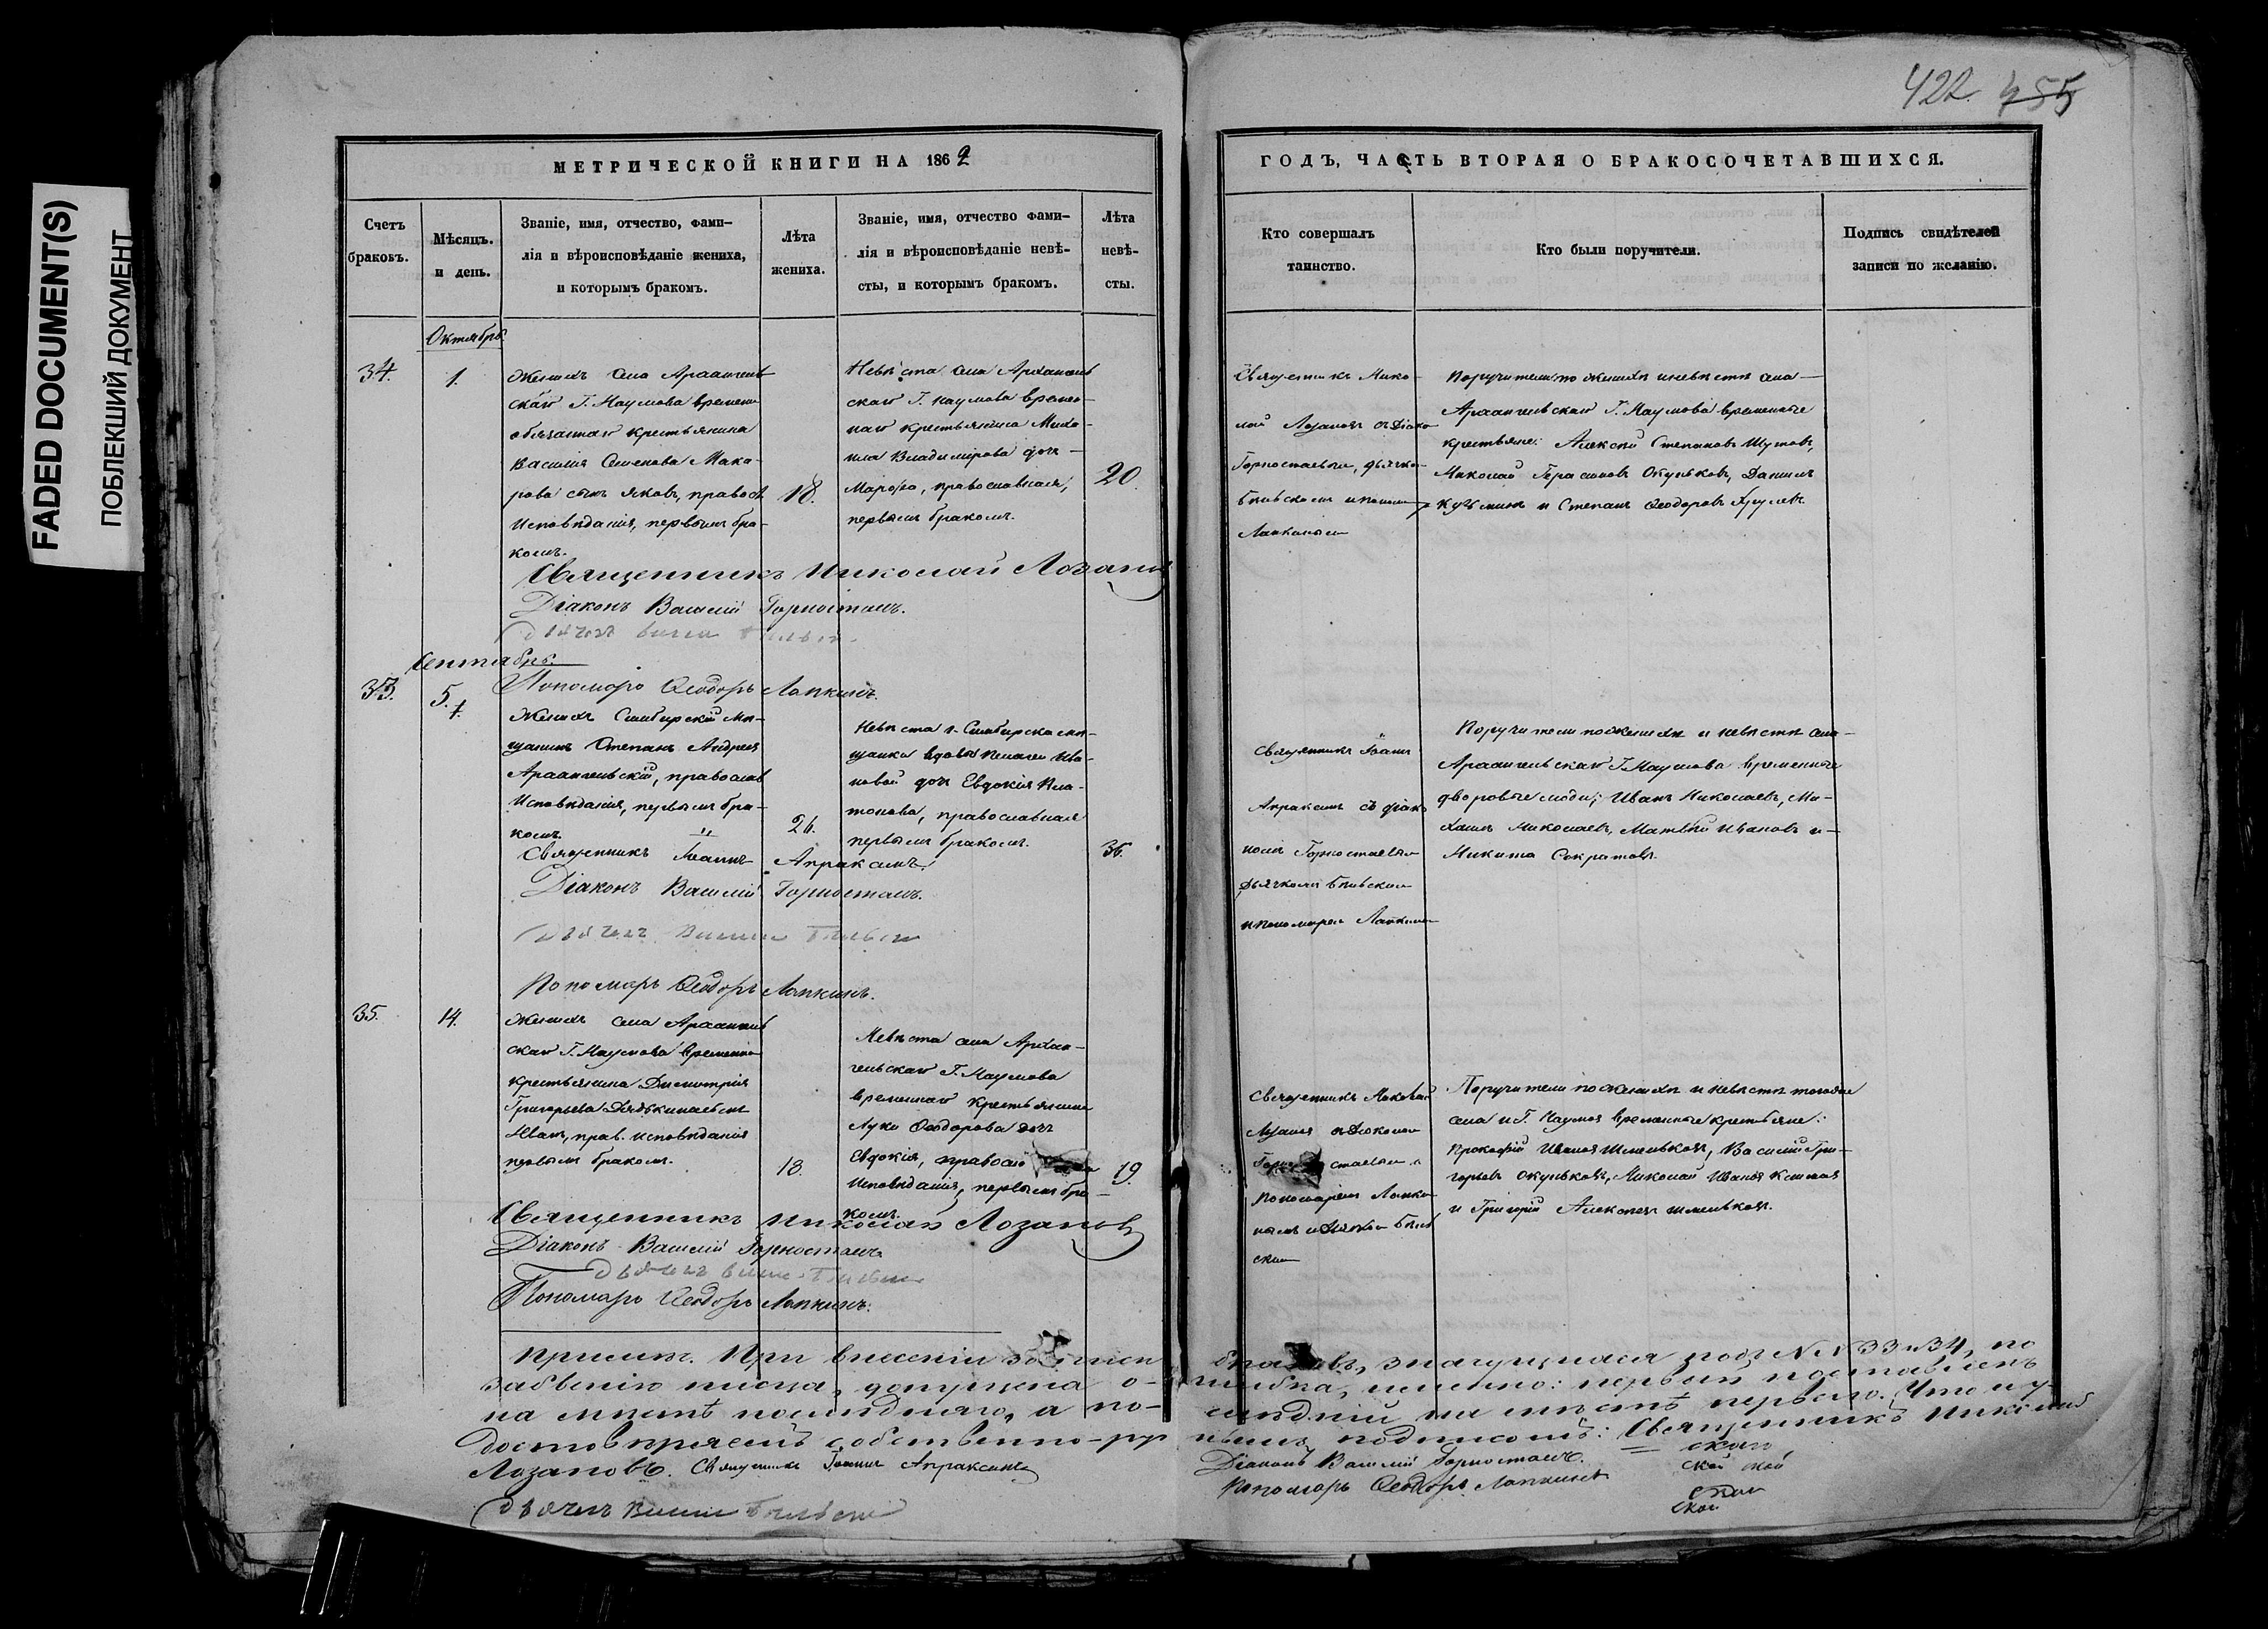 FADED DOCUMENT(S)
ПОБЛЕКШИЙ ДОКУМЕНТ
422. 455
МЕТРИЧЕСКОЙ КНИГИ НА 1862
Счетъ браковъ.
Мѣсяцъ. и день.
Званіе, имя, отчество, фами-
лія и вѣроисповѣданіе жениха,
и которымъ бракомъ.
Лѣта
жениха.
Званіе, имя, отчество фами-
лія и вѣроисповѣданіе невѣ-
сты, и которымъ бракомъ.
Лѣта
невѣ-
сты.
ГОДЪ, ЧАСТЬ ВТОРАЯ О БРАКОСОЧЕТАВШИХСЯ.
Кто совершалъ
таинство.
Кто были поручители.
Подпись свидѣтелей
записи по желанію.
Октябрь.
34.
1.
Женихъ села Архангель
скаго Г. Наумова временно
обязаннаго крестьянина
Василія Семенова Мака-
рова сынъ Яковъ, правосл
исповѣданія, первымъ бра-
комъ.
18.
Невѣста села Архангель
скаго Г. Наумова времен-
наго крестьянина Миха-
ила Владимірова дочь
Марѳа, православная,
первымъ бракомъ.
20.
Священникъ Нико-
лай Лозановъ съ Діако
Горностаевымъ, дьячко-
Бѣльскимъ и поном
Лапкинымъ
Поручители по женихѣ и невѣстѣ села
Архангельскаго Г. Наумова временные
крестьяне: Алексѣй Степановъ Шутовъ,
Николай Герасимовъ Окуньковъ, Даніилъ
Кузьминъ и Степанъ Ѳеодоровъ
Священникъ Николай Лозановъ
Діаконъ Василій Горностаевъ.
Дьячекъ
Пономарь Ѳеодоръ Лапкинъ.
Сентябрь.
33.
5.
Женихъ Симбирскій мѣ-
щанинъ Степанъ Андреевъ
Архангельскій, православ
исповѣданія, первымъ бра-
комъ.
26.
Невѣста г. Симбирска мѣ-
щанки вдовы Пелагеи Ива-
новой дочь Евдокія Пла-
тонова, православная
первымъ бракомъ.
36.
Священникъ Іоаннъ
Апраксинъ съ діако
номъ Горностаевымъ
Дьячкомъ Бѣльскимъ
и пономарем Лапкинымъ
Поручители по женихѣ и невѣстѣ села
Архангельскаго Г. Наумова временные
дворовые люди: Иванъ Николаевъ, Ми-
хаилъ Николаевъ, Матвѣй Ивановъ и
Никита Сократовъ.
Священникъ Іоаннъ Апраксинъ.
Діаконъ Василій Горностаевъ.
Дьячекъ
Пономарь Ѳеодоръ Лапкинъ.
35.
14.
Женихъ села Архангель
скаго Г. Наумова временно
крестьянина Димитрія
Григорьева
Иванъ, прав. исповѣданія
первымъ бракомъ.
18.
Невѣста села Архан-
гельскаго Г. Наумова
временнаго крестьянина
Луки Ѳеодорова дочь
Евдокія, правосл
исповѣданія, первымъ бра-
комъ.
19.
Священникъ Николай
Лозановъ съ Діакономъ
Горностаевымъ
пономаремъ Лапки
нымъ и Дьячко Бѣль
скимъ
Поручители по женихѣ и невѣстѣ тогоже
села и Г. Наумова временные крестьяне:
Прокофій Ивановъ Шмельковъ, Василій Гри-
горьевъ Окуньковъ, Николай Ивановъ
и Григорій Алексѣевъ Шмельковъ.
Священникъ Николай Лозановъ
Діаконъ Василій Горностаевъ
Дьячекъ
Пономарь Ѳеодоръ Лапкинъ.
Примѣч. При внесеніи записи браковъ, значущихся подъ №№ 33 и 34, по
забвенію писца, допущена ошибка, именно: первый поставленъ
на мѣстѣ послѣдняго, а послѣдній на мѣстѣ перваго. Что и у-
достовѣряемъ собственно-ручнымъ подписомъ: Священникъ Николай
Лозановъ. Священникъ Іоаннъ Апраксинъ
Діаконъ Василій Горностаевъ.
Дьячекъ
Пономарь Ѳеодоръ Лапкинъ